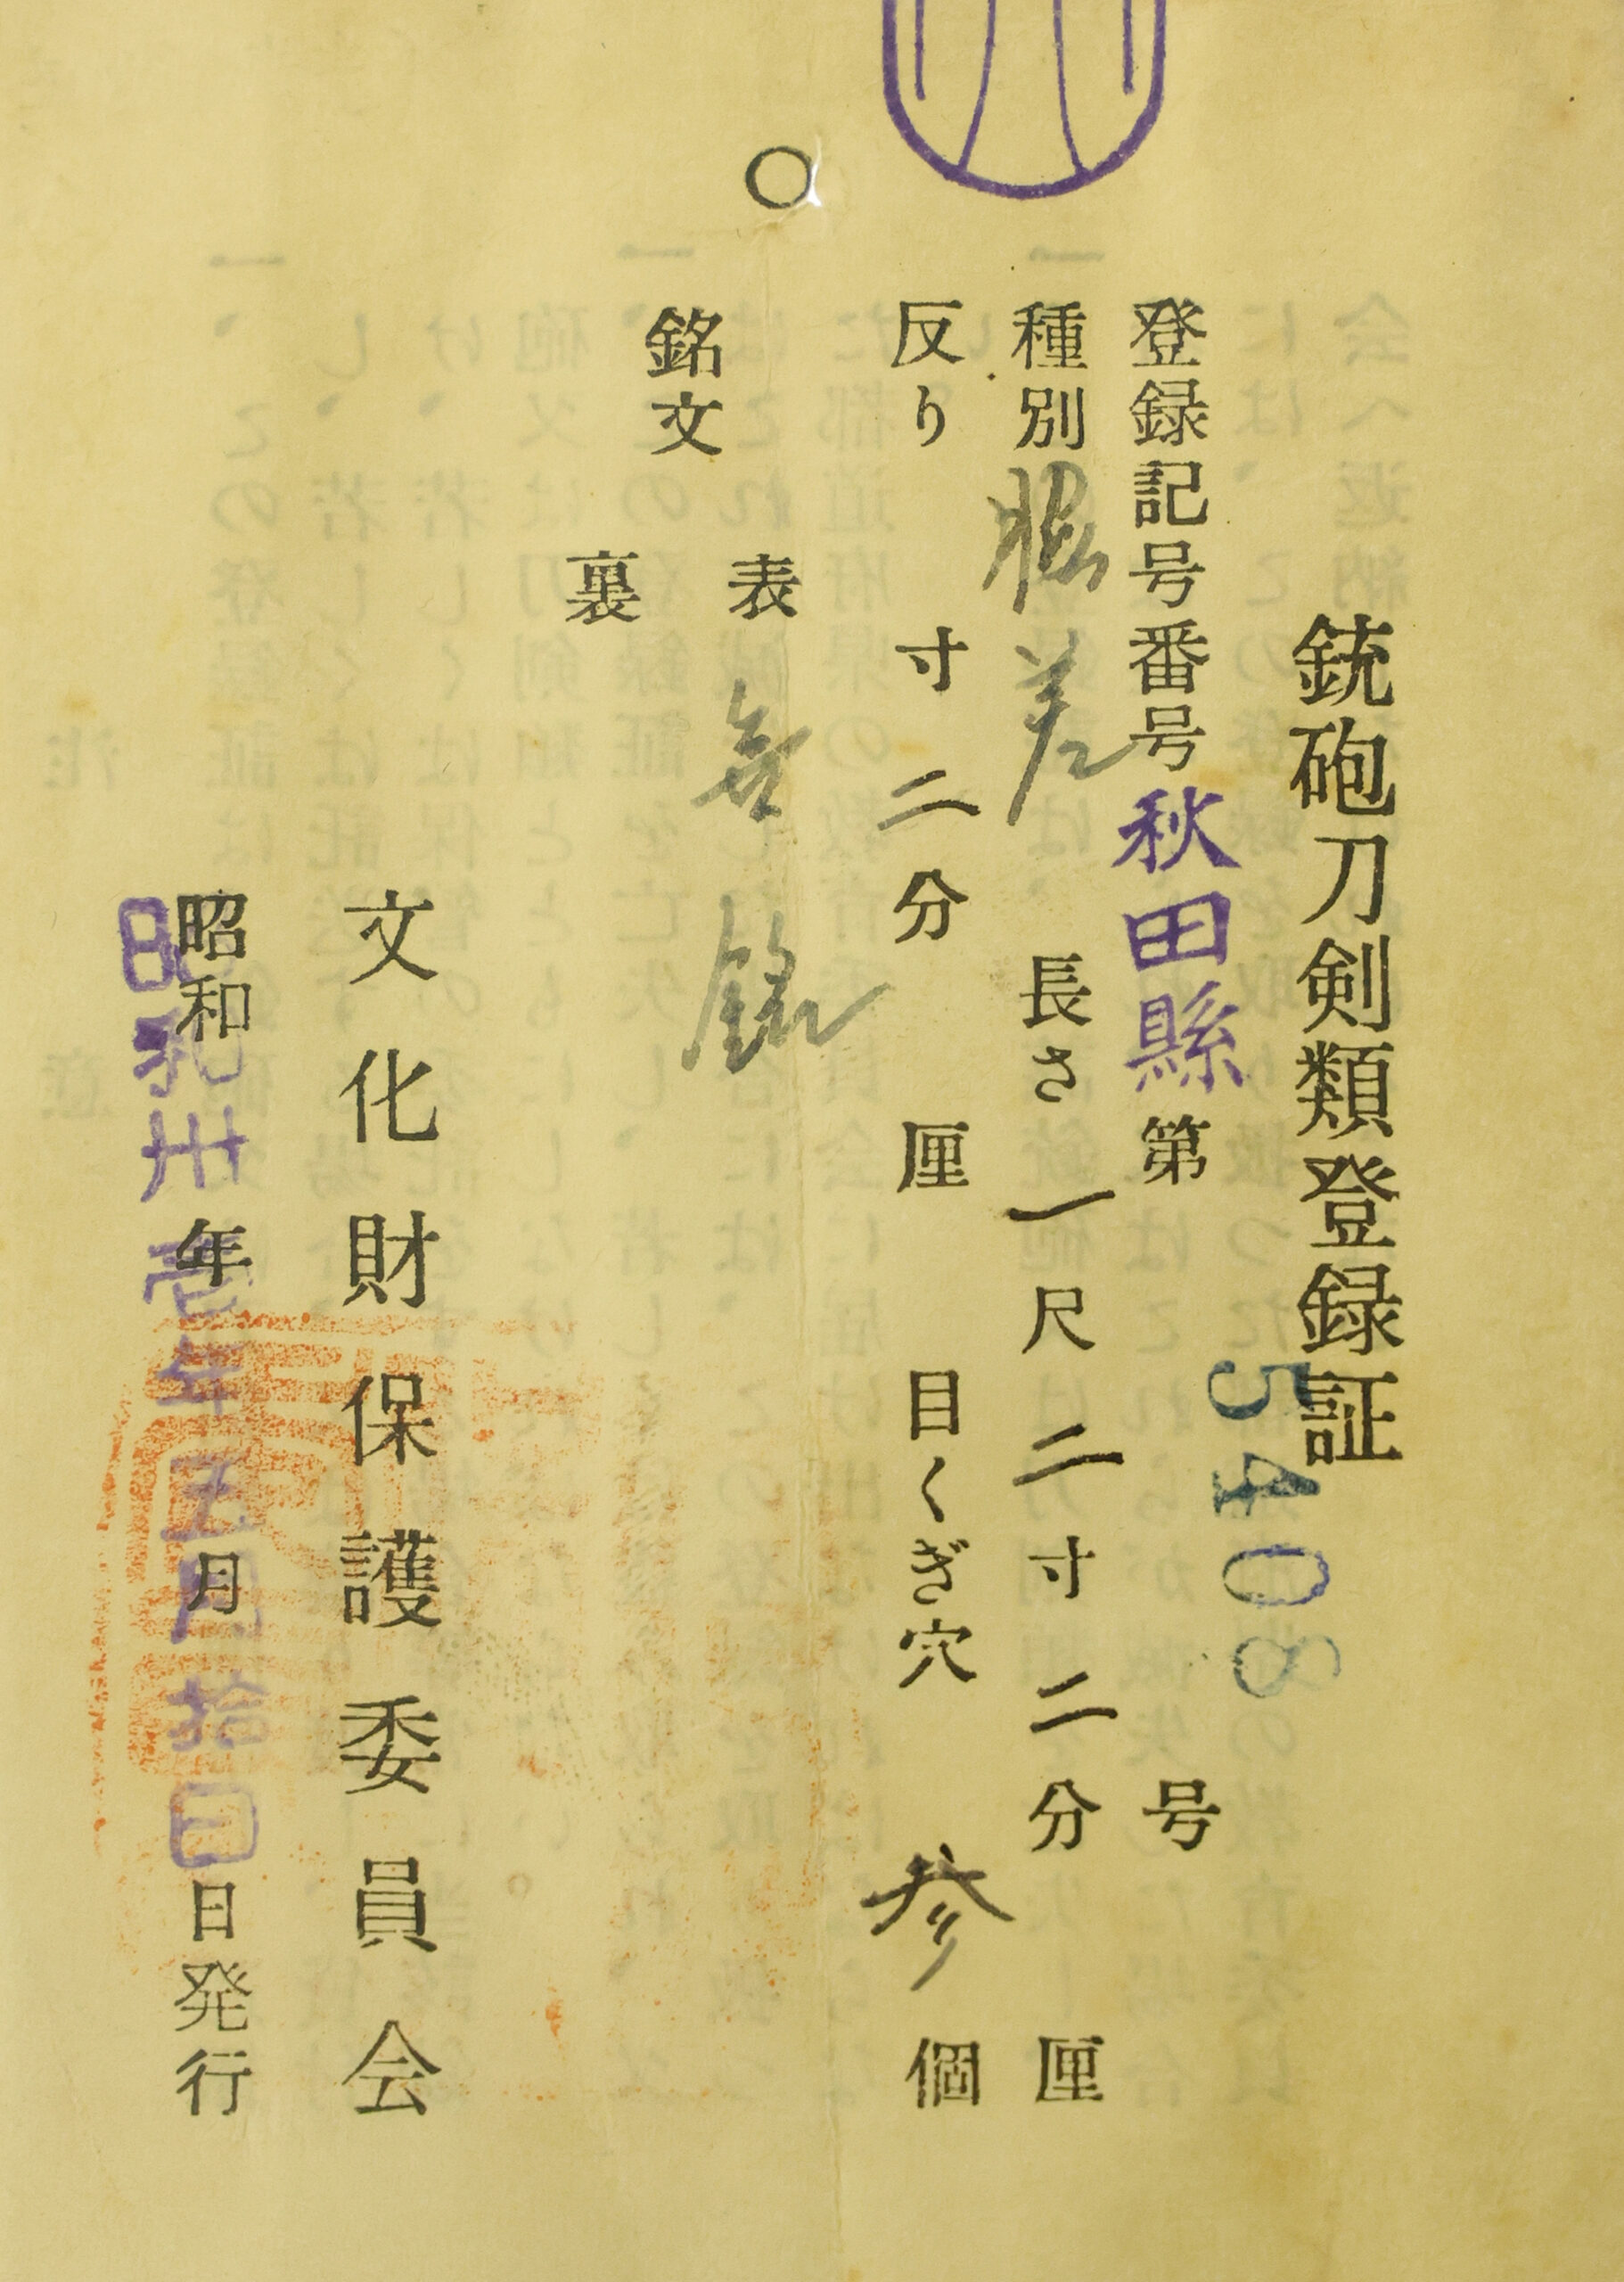 銃砲刀剣類登録証
登録記号番号 秋田縣 第 5408 号
種別 脇差 長さ 一尺 二寸 二分 厘
反り 寸 二分 厘 目くぎ穴 参 個
銘文
表 無銘
裏
文化財保護委員会
昭和 年 月 日発行
昭和卅壱年五月拾日